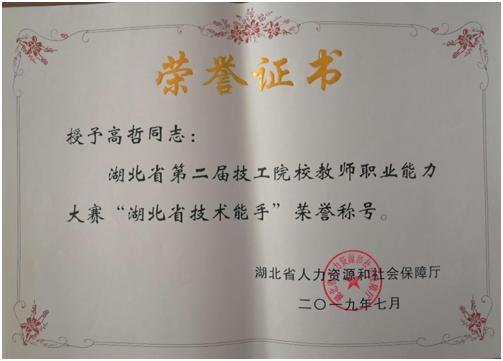 荣誉证书
授予高哲同志：
湖北省第二届技工院校教师职业能力
大赛“湖北省技术能手”荣誉称号。
湖北省人力资源和社会保障厅
二〇一九年七月